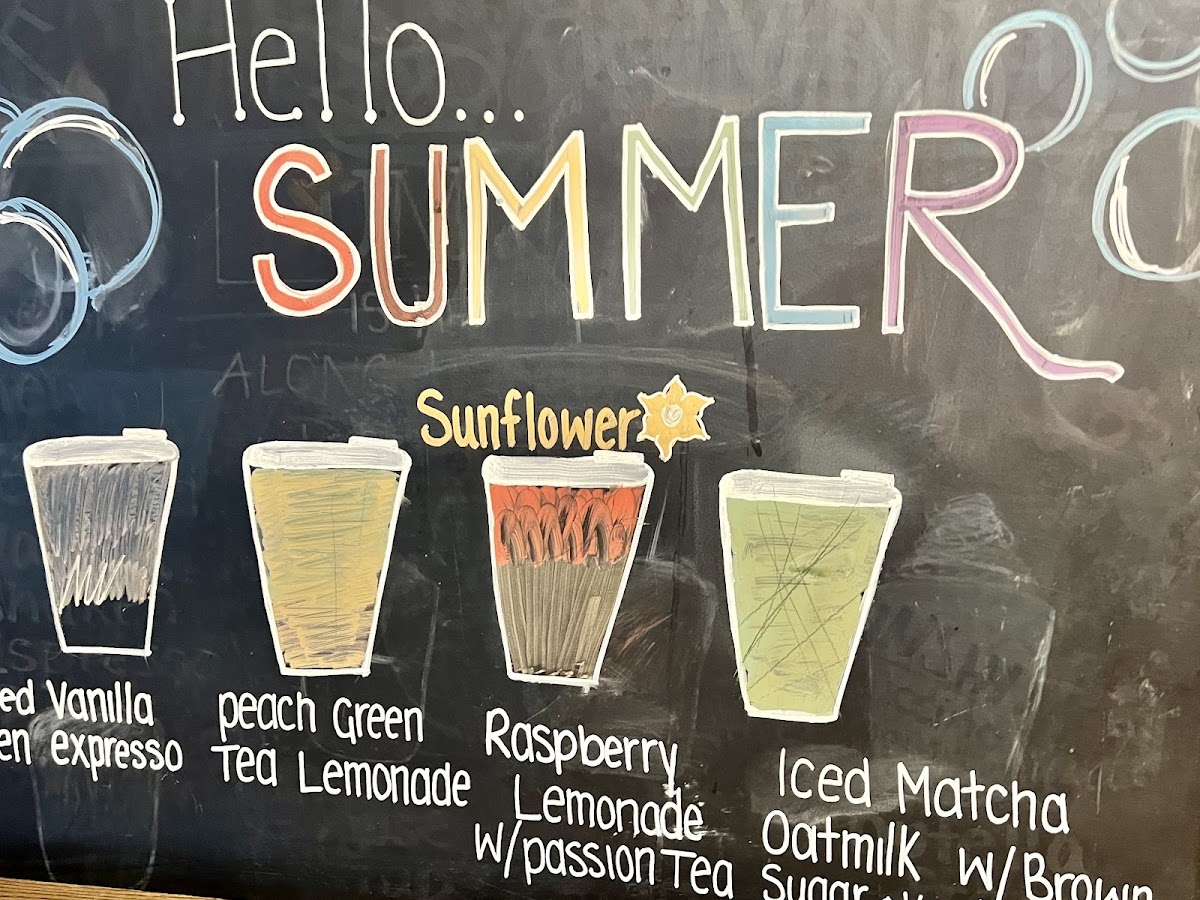 Hello...
SUMMER
ALONG
Sunflower
ed Vanilla
en expresso
peach Green
Tea Lemonade
Raspberry
Lemonade
W/passion Tea
Iced Matcha
Oatmilk W/Brown
Sugar